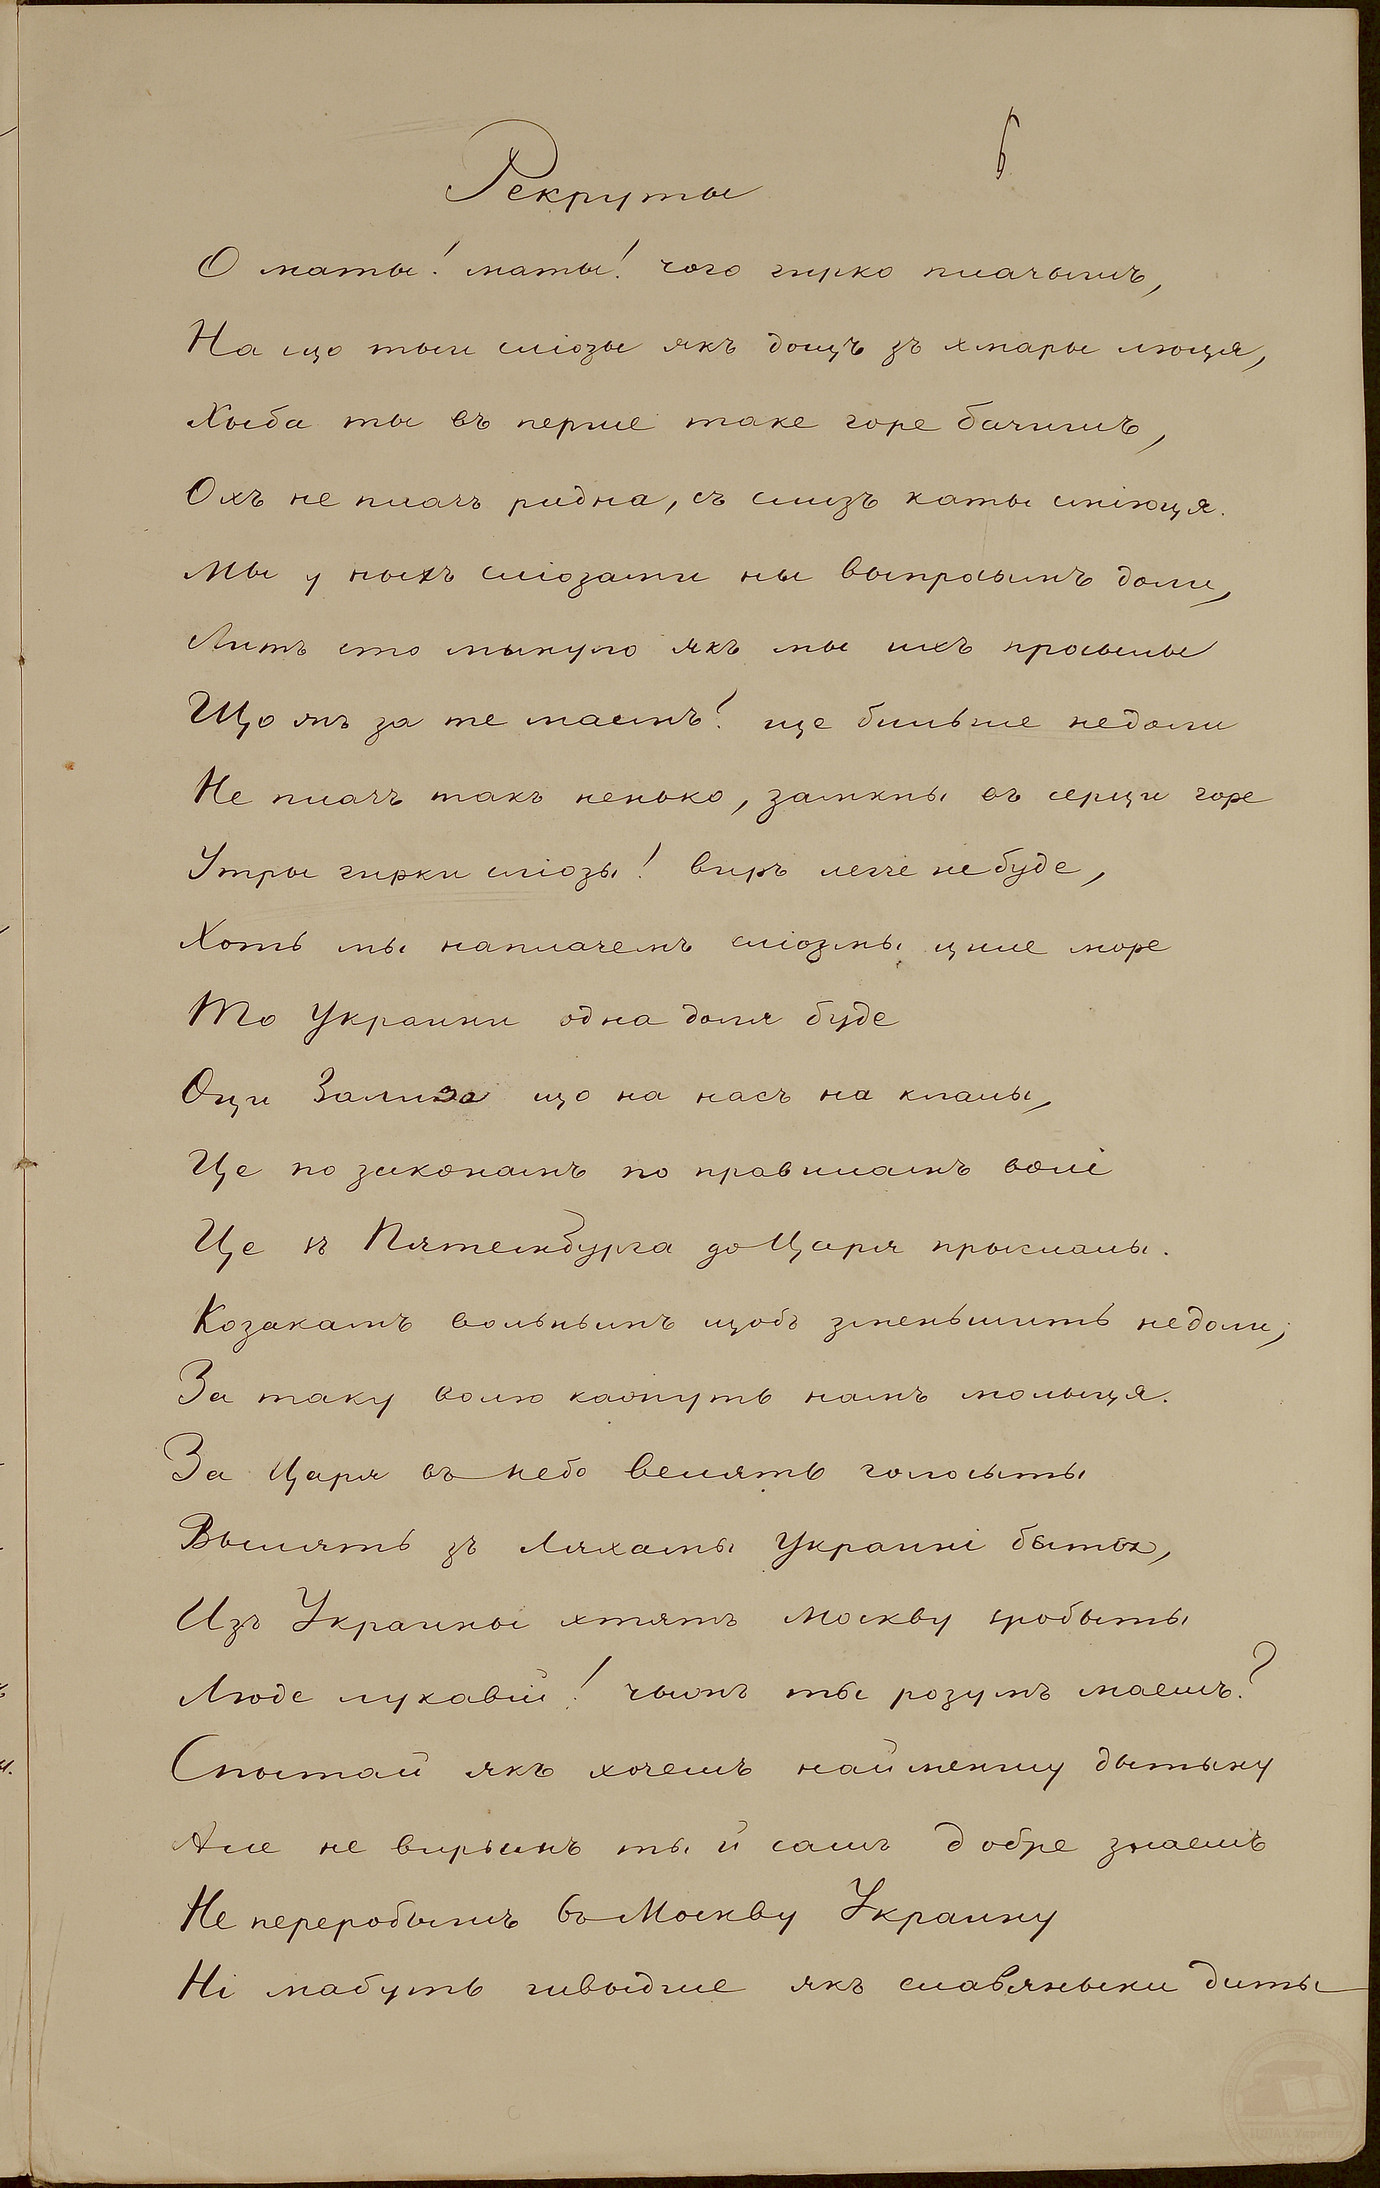 6
Рекруты
О маты! маты! чого гирко плачышъ,
На що тыи слiозы якъ дощъ зъ хмары люця,
Хыба ты въ перше таке горе бачишъ,
Охъ не плачъ ридна, съ слизъ каты смiюця.
Мы у ныхъ слiозами ны выпросымъ доли,
Литъ сто мынуло якъ мы ихъ просылы
Що жъ за те маемъ! ще бильше недоли
Не плачъ такъ ненько, замкны въ серци горе
Утры гирки слiозы! виръ легче не буде,
Хоть мы наплачемъ слiозмы циле море
То Украини одна доля буде
Оци Зализа що на насъ на клалы,
Це по законамъ по правиламъ волi
Це зъ Пятембурга до Царя прыслалы.
Козакамъ вольнымъ щобъ зменьшить недоли,
За таку волю кажуть намъ молыця.
За Царя въ небо велять голосыты
Вылять зъ Ляхамы Украинi бытьх,
Изъ Украины хтять Москву зробыты
Люде лукавiи! чымъ ты розумъ маешъ?
Спытай якъ хочешъ найменшу дытыну
Але не вирымъ ты й самъ добре знаешъ
Не переробышъ въ Москву Украину
Нi мабуть швыдше якъ славяныки диты